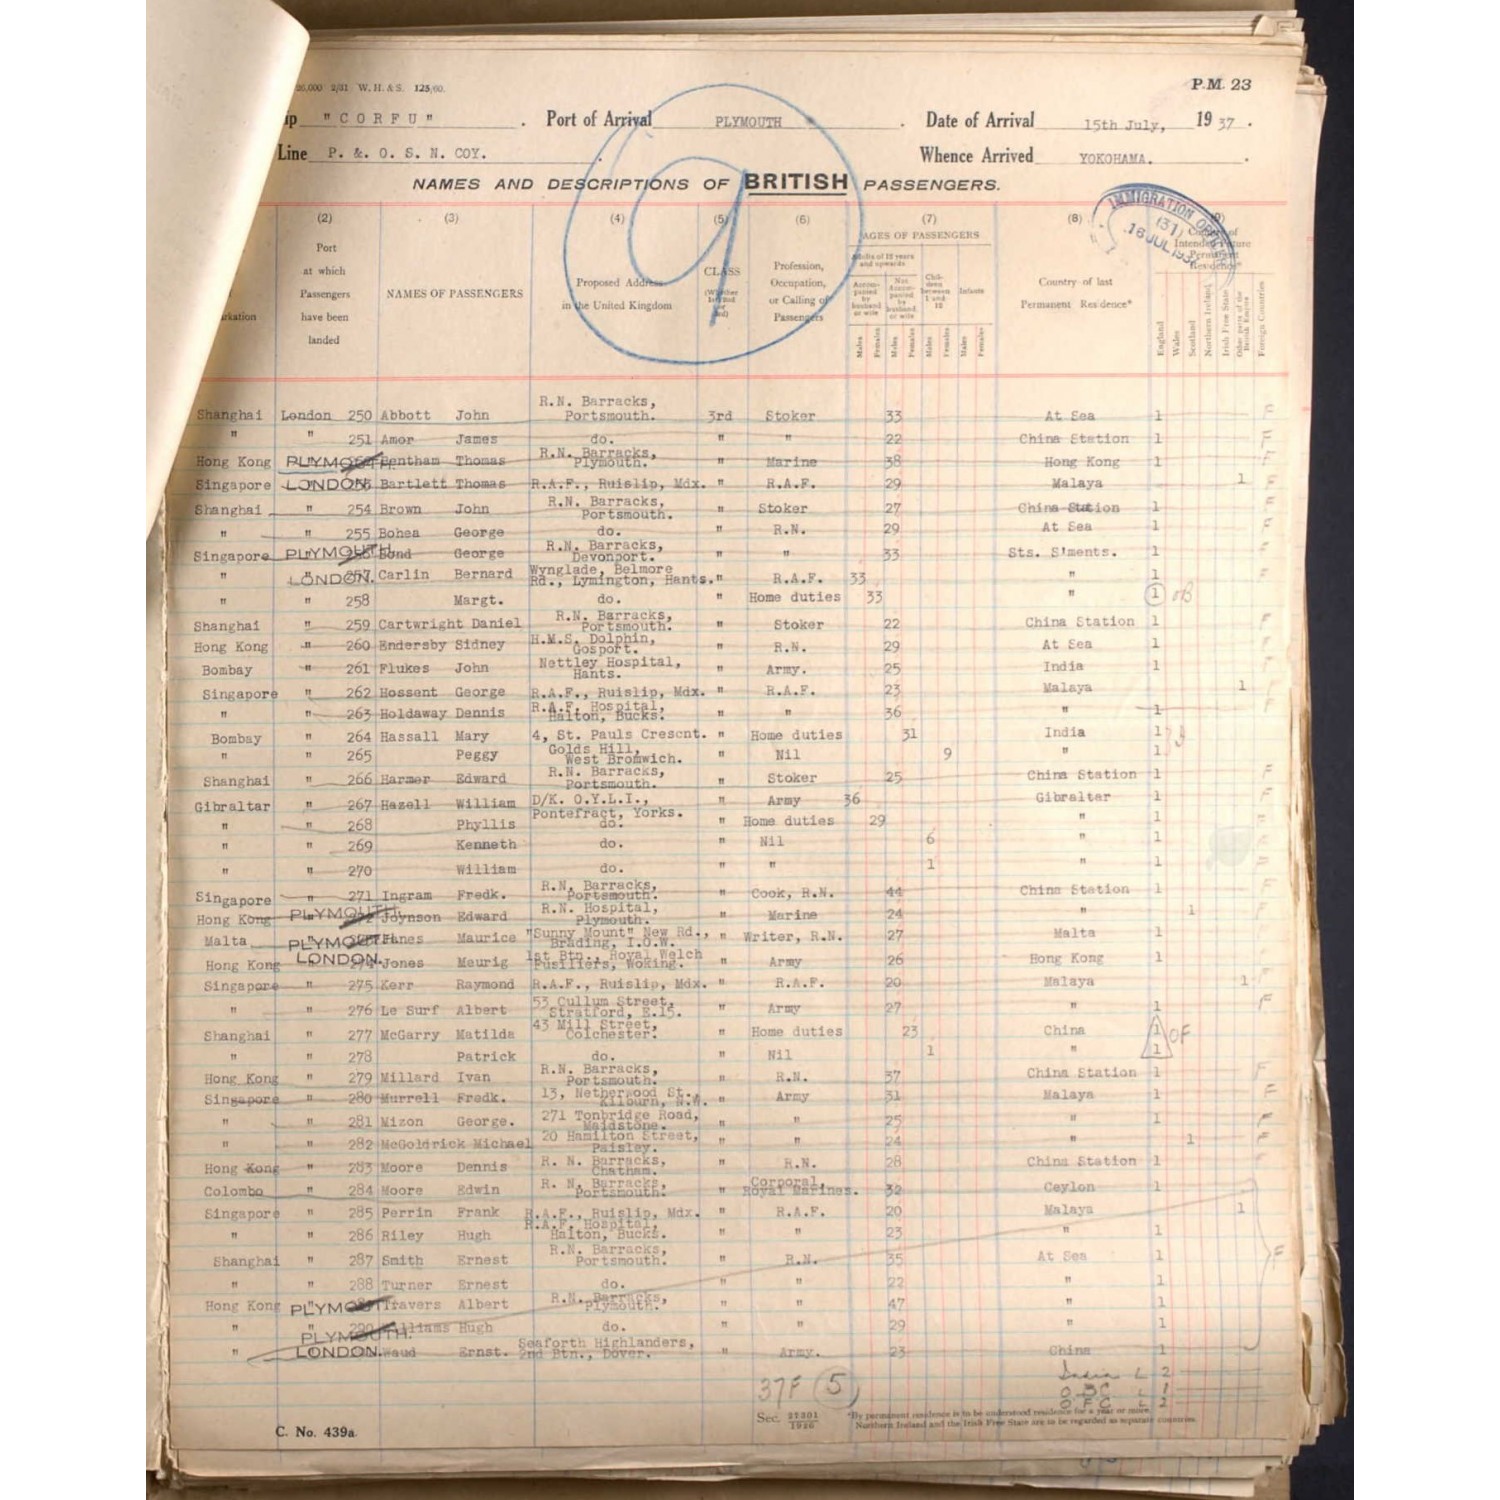 26,000 2/31 W. H. & S. 125/60. P.M. 23
"CORFU" . Port of Arrival PLYMOUTH . Date of Arrival 15th July, 1937 .
Line P. &. O. S. N. COY. . Whence Arrived YOKOHAMA. .
NAMES AND DESCRIPTIONS OF BRITISH PASSENGERS.
IMMIGRATION
(31)
16 JUL 193
(2) (3) (4) (5) (6) (7) (8) (9)
Port at which Passengers have been landed
NAMES OF PASSENGERS
Proposed Address in the United Kingdom
CLASS
Profession, Occupation, or Calling of Passengers
AGES OF PASSENGERS
Adults of 12 years and upwards
Accompanied by husband or wife
Not Accompanied by husband or wife
Children between 1 and 12
Infants
Males Females Males Females Males Females Males Females
Country of last Permanent Residence*
Country of Intended Future Permanent Residence*
England Wales Scotland Northern Ireland Irish Free State Other parts of the British Empire Foreign Countries
Shanghai London 250 Abbott John R.N. Barracks, Portsmouth. 3rd Stoker 33 At Sea 1 F
" " 251 Amor James do. " " 22 China Station 1 F
Hong Kong PLYMOUTH Bentham Thomas R.N. Barracks, Plymouth. " Marine 38 Hong Kong 1 F
Singapore LONDON Bartlett Thomas R.A.F., Ruislip, Mdx. " R.A.F. 29 Malaya 1 F
Shanghai " 254 Brown John R.N. Barracks, Portsmouth. " Stoker 27 China Station 1 F
" " 255 Bohea George do. " R.N. 29 At Sea 1 F
Singapore PLYMOUTH Bond George R.N. Barracks, Devonport. " " 33 Sts. S'ments. 1 F
" LONDON. 257 Carlin Bernard Wynglade, Belmore Rd., Lymington, Hants. " R.A.F. 33 " 1 F
" " 258 Margt. do. " Home duties 33 " 1 OB
Shanghai " 259 Cartwright Daniel R.N. Barracks, Portsmouth. " Stoker 22 China Station 1 F
Hong Kong " 260 Endersby Sidney H.M.S. Dolphin, Gosport. " R.N. 29 At Sea 1 F
Bombay " 261 Flukes John Nettley Hospital, Hants. " Army. 25 India 1 F
Singapore " 262 Hossent George R.A.F., Ruislip, Mdx. " R.A.F. 23 Malaya 1 F
" " 263 Holdaway Dennis R.A.F. Hospital, Halton, Bucks. " " 36 " 1 F
Bombay " 264 Hassall Mary 4, St. Pauls Crescnt. " Home duties 31 India 1
" " 265 Peggy Golds Hill, West Bromwich. " Nil 9 " 1
Shanghai " 266 Harmer Edward R.N. Barracks, Portsmouth. " Stoker 25 China Station 1 F
Gibraltar " 267 Hazell William D/K. O.Y.L.I., " Army 36 Gibraltar 1 F
" " 268 Phyllis Pontefract, Yorks. do. " Home duties 29 " 1
" " 269 Kenneth do. " Nil 6 " 1
" " 270 William do. " " 1 " 1
Singapore " 271 Ingram Fredk. R.N. Barracks, Portsmouth. " Cook, R.N. 44 China Station 1 F
Hong Kong PLYMOUTH Joynson Edward R.N. Hospital, Plymouth. " Marine 24 " 1 F
Malta PLYMOUTH Maurice "Sunny Mount" New Rd., Brading, I.O.W. " Writer, R.N. 27 Malta 1 F
Hong Kong LONDON. 274 Jones Meurig 1st Btn., Royal Welch Fusiliers, Woking. " Army 26 Hong Kong 1
Singapore " 275 Kerr Raymond R.A.F., Ruislip, Mdx. " R.A.F. 20 Malaya 1 F
" " 276 Le Surf Albert 53 Cullum Street, Stratford, E.15. " Army 27 " 1 F
Shanghai " 277 McGarry Matilda 43 Mill Street, Colchester. " Home duties 23 China 1 OF
" " 278 Patrick do. " Nil 1 " 1
Hong Kong " 279 Millard Ivan R.N. Barracks, Portsmouth. " R.N. 37 China Station 1 F
Singapore " 280 Murrell Fredk. 13, Netherwood St., Kilburn, N.W. " Army 31 Malaya 1 F
" " 281 Mizon George. 271 Tonbridge Road, Maidstone. " " 25 " 1 F
" " 282 McGoldrick Michael 20 Hamilton Street, Paisley. " " 24 " 1 F
Hong Kong " 283 Moore Dennis R. N. Barracks, Chatham. " R.N. 28 China Station 1 F
Colombo " 284 Moore Edwin R. N. Barracks, Portsmouth. " Corporal, Royal Marines. 32 Ceylon 1
Singapore " 285 Perrin Frank R.A.F., Ruislip, Mdx. " R.A.F. 20 Malaya 1
" " 286 Riley Hugh R.A.F. Hospital, Halton, Bucks. " " 23 " 1
Shanghai " 287 Smith Ernest R.N. Barracks, Portsmouth. " R.N. 35 At Sea 1 F
" " 288 Turner Ernest do. " " 22 " 1
Hong Kong PLYMOUTH Travers Albert R.N. Barracks, Plymouth. " " 47 " 1
" PLYMOUTH. 290 Williams Hugh do. " " 29 " 1
" LONDON. Waud Ernst. Seaforth Highlanders, 2nd Btn., Dover. " Army. 23 China 1
37F 5
India L 2
O B C L 1
O F C L 2
Sec. 27301/1926
*By permanent residence is to be understood residence for a year or more.
Northern Ireland and the Irish Free State are to be regarded as separate countries.
C. No. 439a